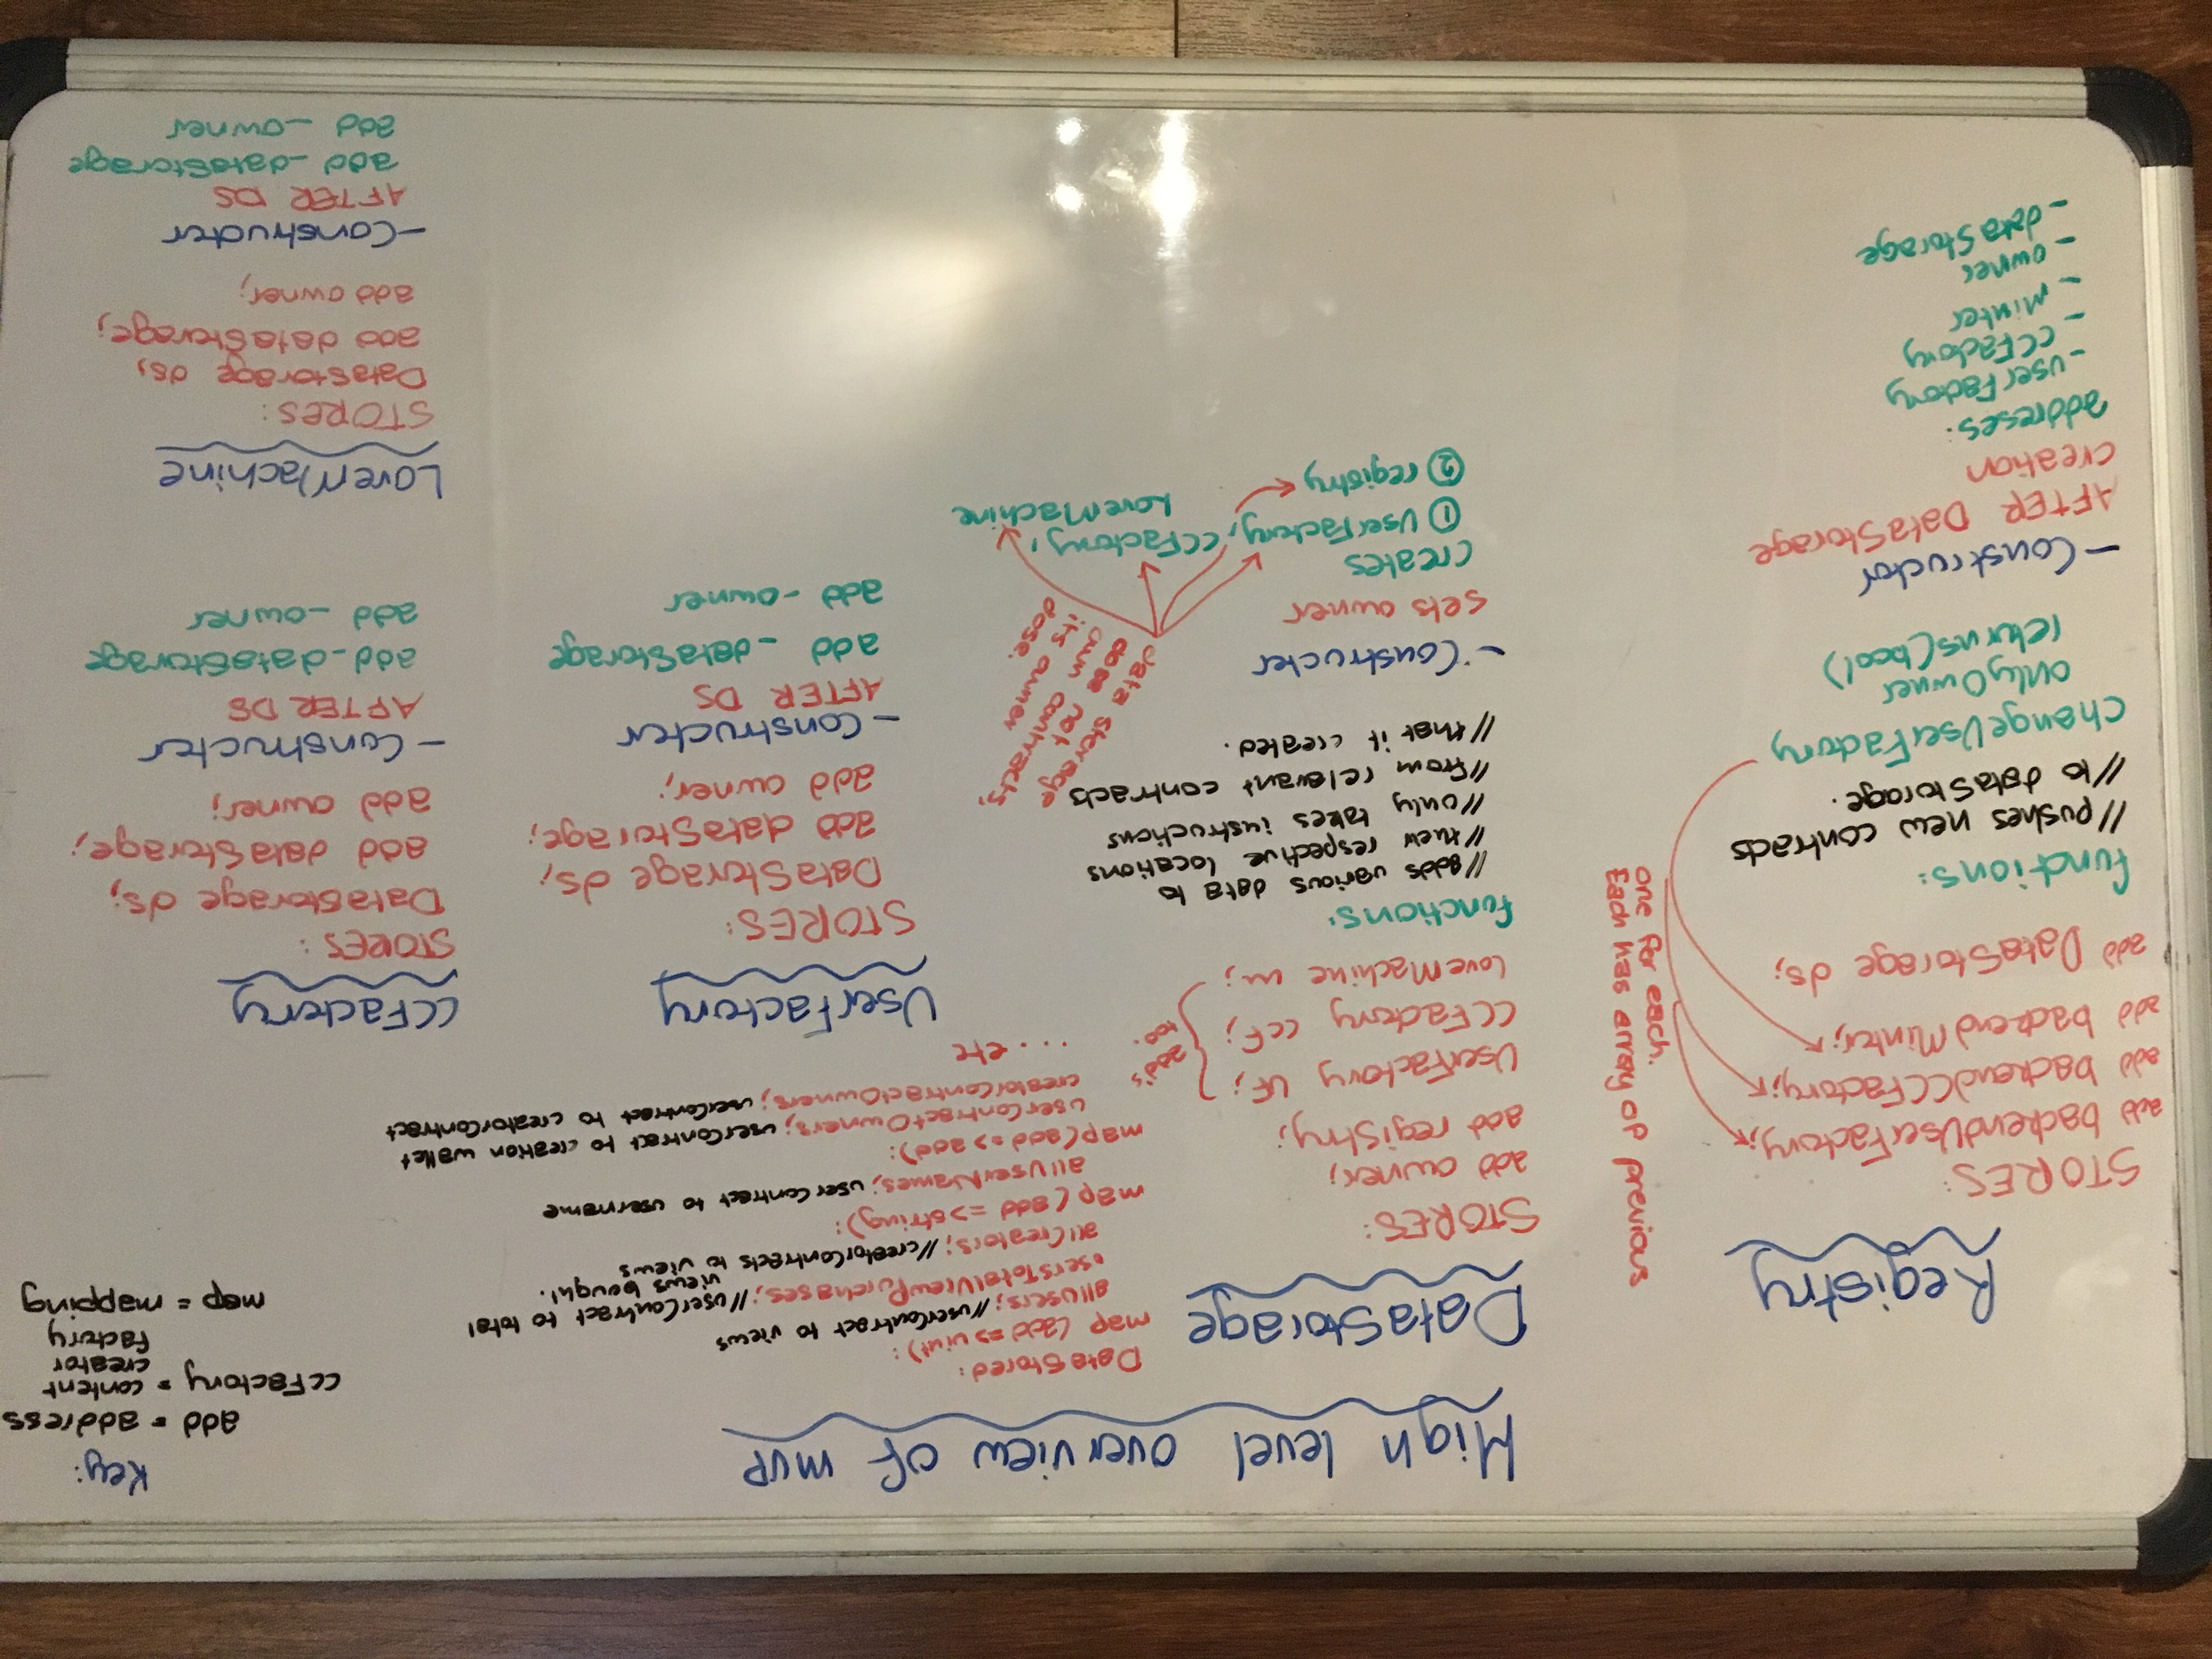 High level overview of mvp
Key:
add = address
ccFactory = content
creator
factory
map = mapping
Registry
STORES:
add backendUserFactory;
add backendCCFactory;
add backendMinter;
add DataStorage ds;
one for each.
Each has array of previous
functions:
//pushes new contracts
//to dataStorage.
changeUserFactory
onlyOwner
returns(bool)
- Constructor
AFTER DataStorage
creation
addreses:
- userFactory
- CCFactory
- Minter
- owner
- dataStorage
DataStorage
STORES:
add owner;
add registry;
UserFactory UF;
CCFactory ccF;
LoveMachine m;
add's
too.
functions:
//adds various data to
//their respective locations
//only takes instructions
//from relevant contracts
//that it created.
- Constructer
sets owner
creates
① UserFactory, CCFactory,
LoveMachine
② registry
data storage
does not
own contracts,
its owner
dose.
Data Stored:
map (add => uint):
allUsers; //userContract to views
usersTotalViewPurchases; //userContract to total
views bought.
allCreators; //creatorContracts to views
map (add => string):
allUserNames; userContract to username
map(add => add):
userContractOwners; userContract to creation wallet
creatorContractOwners; userContract to creatorContract
... etc
UserFactory
STORES:
DataStorage ds;
add dataStorage;
add owner;
- Constructer
AFTER DS
add _dataStorage
add -owner
CCFactory
STORES:
DataStorage ds;
add dataStorage;
add owner;
- Constructer
AFTER DS
add _dataStorage
add _owner
LoveMachine
STORES:
DataStorage ds;
add dataStorage;
add owner;
- Constructer
AFTER DS
add _dataStorage
add _owner